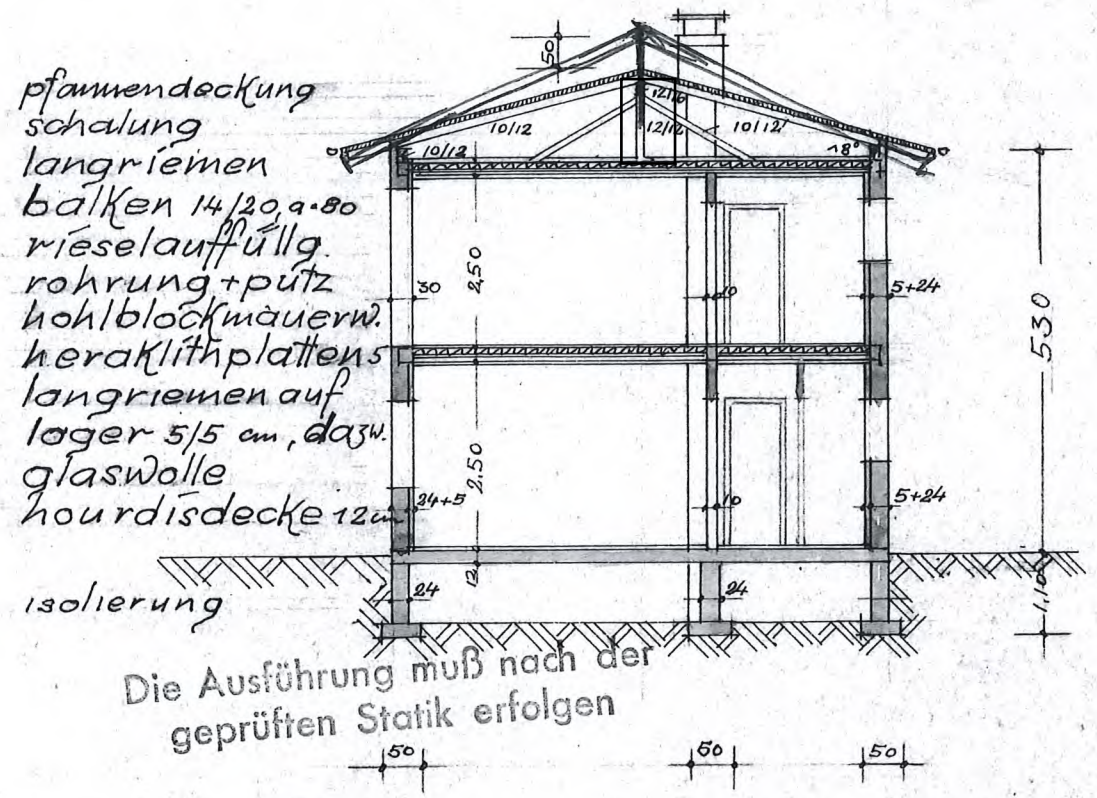 50
pfannendeckung
schalung
langriemen
balken 14/20, a=80
rieselauffüllg.
rohrung + putz
hohlblockmauerw.
heraklithplatten 5
langriemen auf
lager 5/5 cm, dazw.
glaswolle
hourdisdecke 12 cm
isolierung
10/12
10/12
12/16
12/12
10/12
18°
2,50
30
10
5+24
530
2,50
24+5
10
5+24
12
24
24
1,10
Die Ausführung muß nach der
geprüften Statik erfolgen
50
50
50